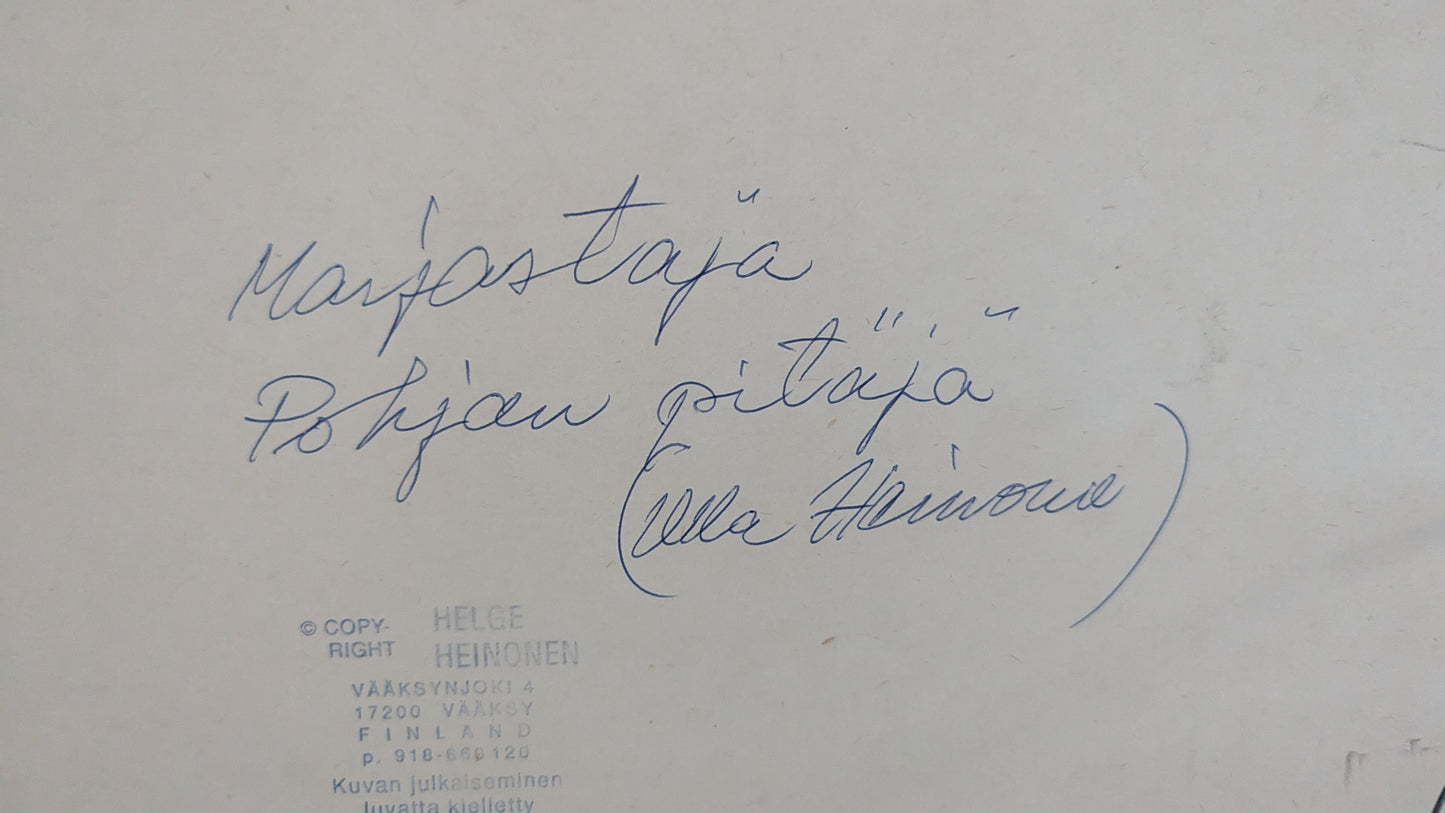 Marjastajä
Pohjan pitäjä
(Ulla Heinone)
© COPY-
RIGHT
HELGE
HEINONEN
VÄÄKSYNJOKI 4
17200 VÄÄKSY
FINLAND
p. 918-660120
Kuvan julkaiseminen
luvatta kielletty